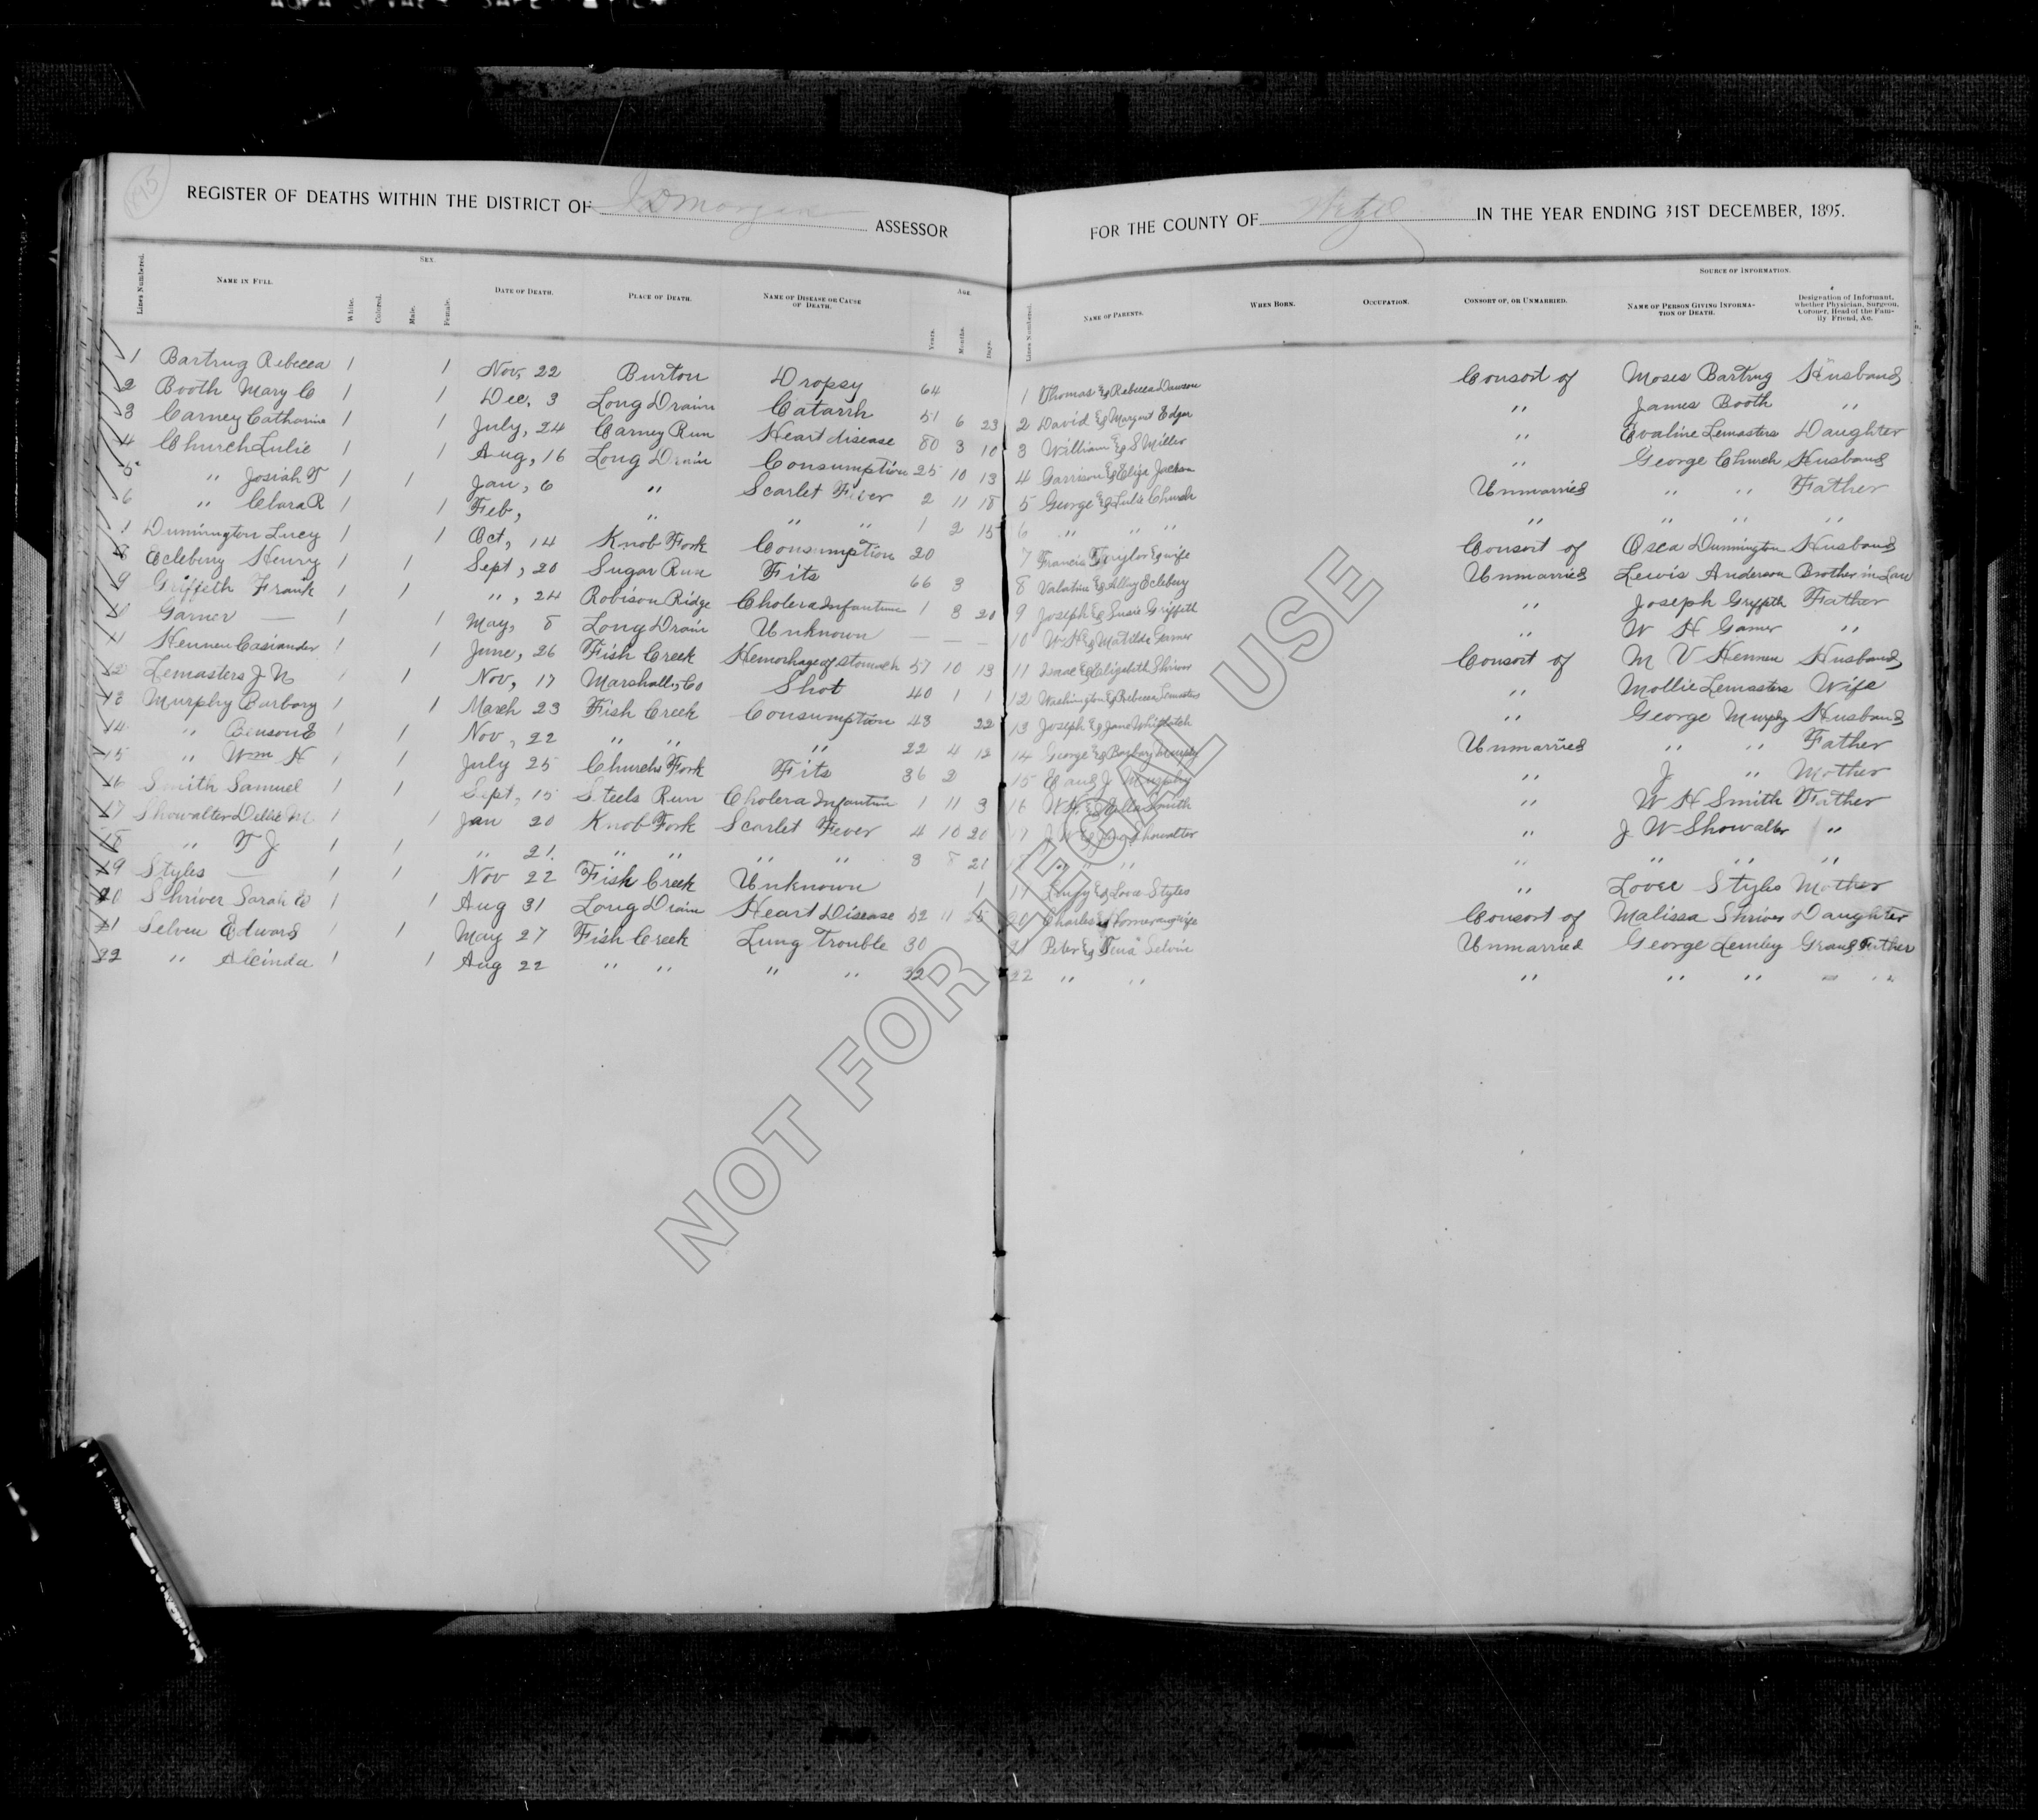 REGISTER OF DEATHS WITHIN THE DISTRICT OF J D Morgan ASSESSOR
FOR THE COUNTY OF Wetzel IN THE YEAR ENDING 31ST DECEMBER, 1895.
Lines Numbered. NAME IN FULL. White. Colored. SEX. Male. Female. DATE OF DEATH. PLACE OF DEATH. NAME OF DISEASE OR CAUSE OF DEATH. AGE. Years. Months. Days.
Lines Numbered. NAME OF PARENTS. WHEN BORN. OCCUPATION. CONSORT OF, OR UNMARRIED. SOURCE OF INFORMATION. NAME OF PERSON GIVING INFORMATION OF DEATH. Designation of Informant, whether Physician, Surgeon, Coroner, Head of the Family Friend, &c.
1 Bartrug Rebecca 1 1 Nov, 22 Burton Dropsy 64 1 Thomas & Rebecca Dawson Consort of Moses Bartrug Husband
2 Booth Mary C 1 1 Dec, 3 Long Drain Catarrh 51 6 23 2 David & Margaret Edgar " James Booth "
3 Carney Catharine 1 1 July, 24 Carney Run Heart disease 80 3 10 3 William & S Miller " Evaline Lemasters Daughter
4 Church Lulie 1 1 Aug, 16 Long Drain Consumption 25 10 13 4 Garrison & Eliza Jackson " George Church Husband
5 " Josiah T 1 1 Jan, 6 " Scarlet Fever 2 11 18 5 George & Lulie Church Unmarried " " Father
6 " Clara R 1 1 Feb, " " " 1 2 15 6 " " " " " " "
Dunnington Lucy 1 1 Oct, 14 Knob Fork Consumption 20 7 Francis Taylor & wife Consort of Osca Dunnington Husband
8 Ecleberry Henry 1 1 Sept, 20 Sugar Run Fits 66 3 8 Valentine & Ecleberry Unmarried Lewis Anderson Brother in Law
9 Griffeth Frank 1 1 ", 24 Robison Ridge Cholera Infantum 1 8 20 9 Joseph & Susie Griffeth " Joseph Griffeth Father
Garner — 1 1 May, 8 Long Drain Unknown — — — 10 W H & Matilda Garner " W H Garner "
Hennen Casiander 1 1 June, 26 Fish Creek Hemorhage of Stomach 57 10 13 11 Isaac & Elizabeth Shriver Consort of M V Hennen Husband
12 Lemasters J N 1 1 Nov, 17 Marshall, Co Shot 40 1 1 12 Washington & Rebecca Lemasters " Mollie Lemasters Wife
13 Murphy Barbary 1 1 March 23 Fish Creek Consumption 43 22 13 Joseph & Jane Whitlatch " George Murphy Husband
14 " Benson E 1 1 Nov, 22 " " " 22 4 12 14 George & Barbary Murphy Unmarried " " Father
15 " Wm H 1 1 July 25 Churchs Fork Fits 36 2 15 E and J Murphy " J " Mother
16 Smith Samuel 1 1 Sept, 15 Steels Run Cholera Infantum 1 11 3 16 W H & Smith " W H Smith Father
17 Showalter Dellie M 1 1 Jan 20 Knob Fork Scarlet Fever 4 10 20 17 J W & Showalter " J W Showalter "
18 " T J 1 1 " 21 " " " " 3 8 21 " " " " " " "
19 Styles — 1 1 Nov 22 Fish Creek Unknown 1 19 & Styles " Lovee Styles Mother
20 Shriver Sarah E 1 1 Aug 31 Long Drain Heart Disease 52 11 25 Charles and wife Consort of Malissa Shriver Daughter
21 Selven Edward 1 1 May 27 Fish Creek Lung Trouble 30 21 Peter & Selvin Unmarried George Lemley Grand Father
22 " Alcinda 1 1 Aug 22 " " " " 22 22 " " " " " " "
NOT FOR LEGAL USE